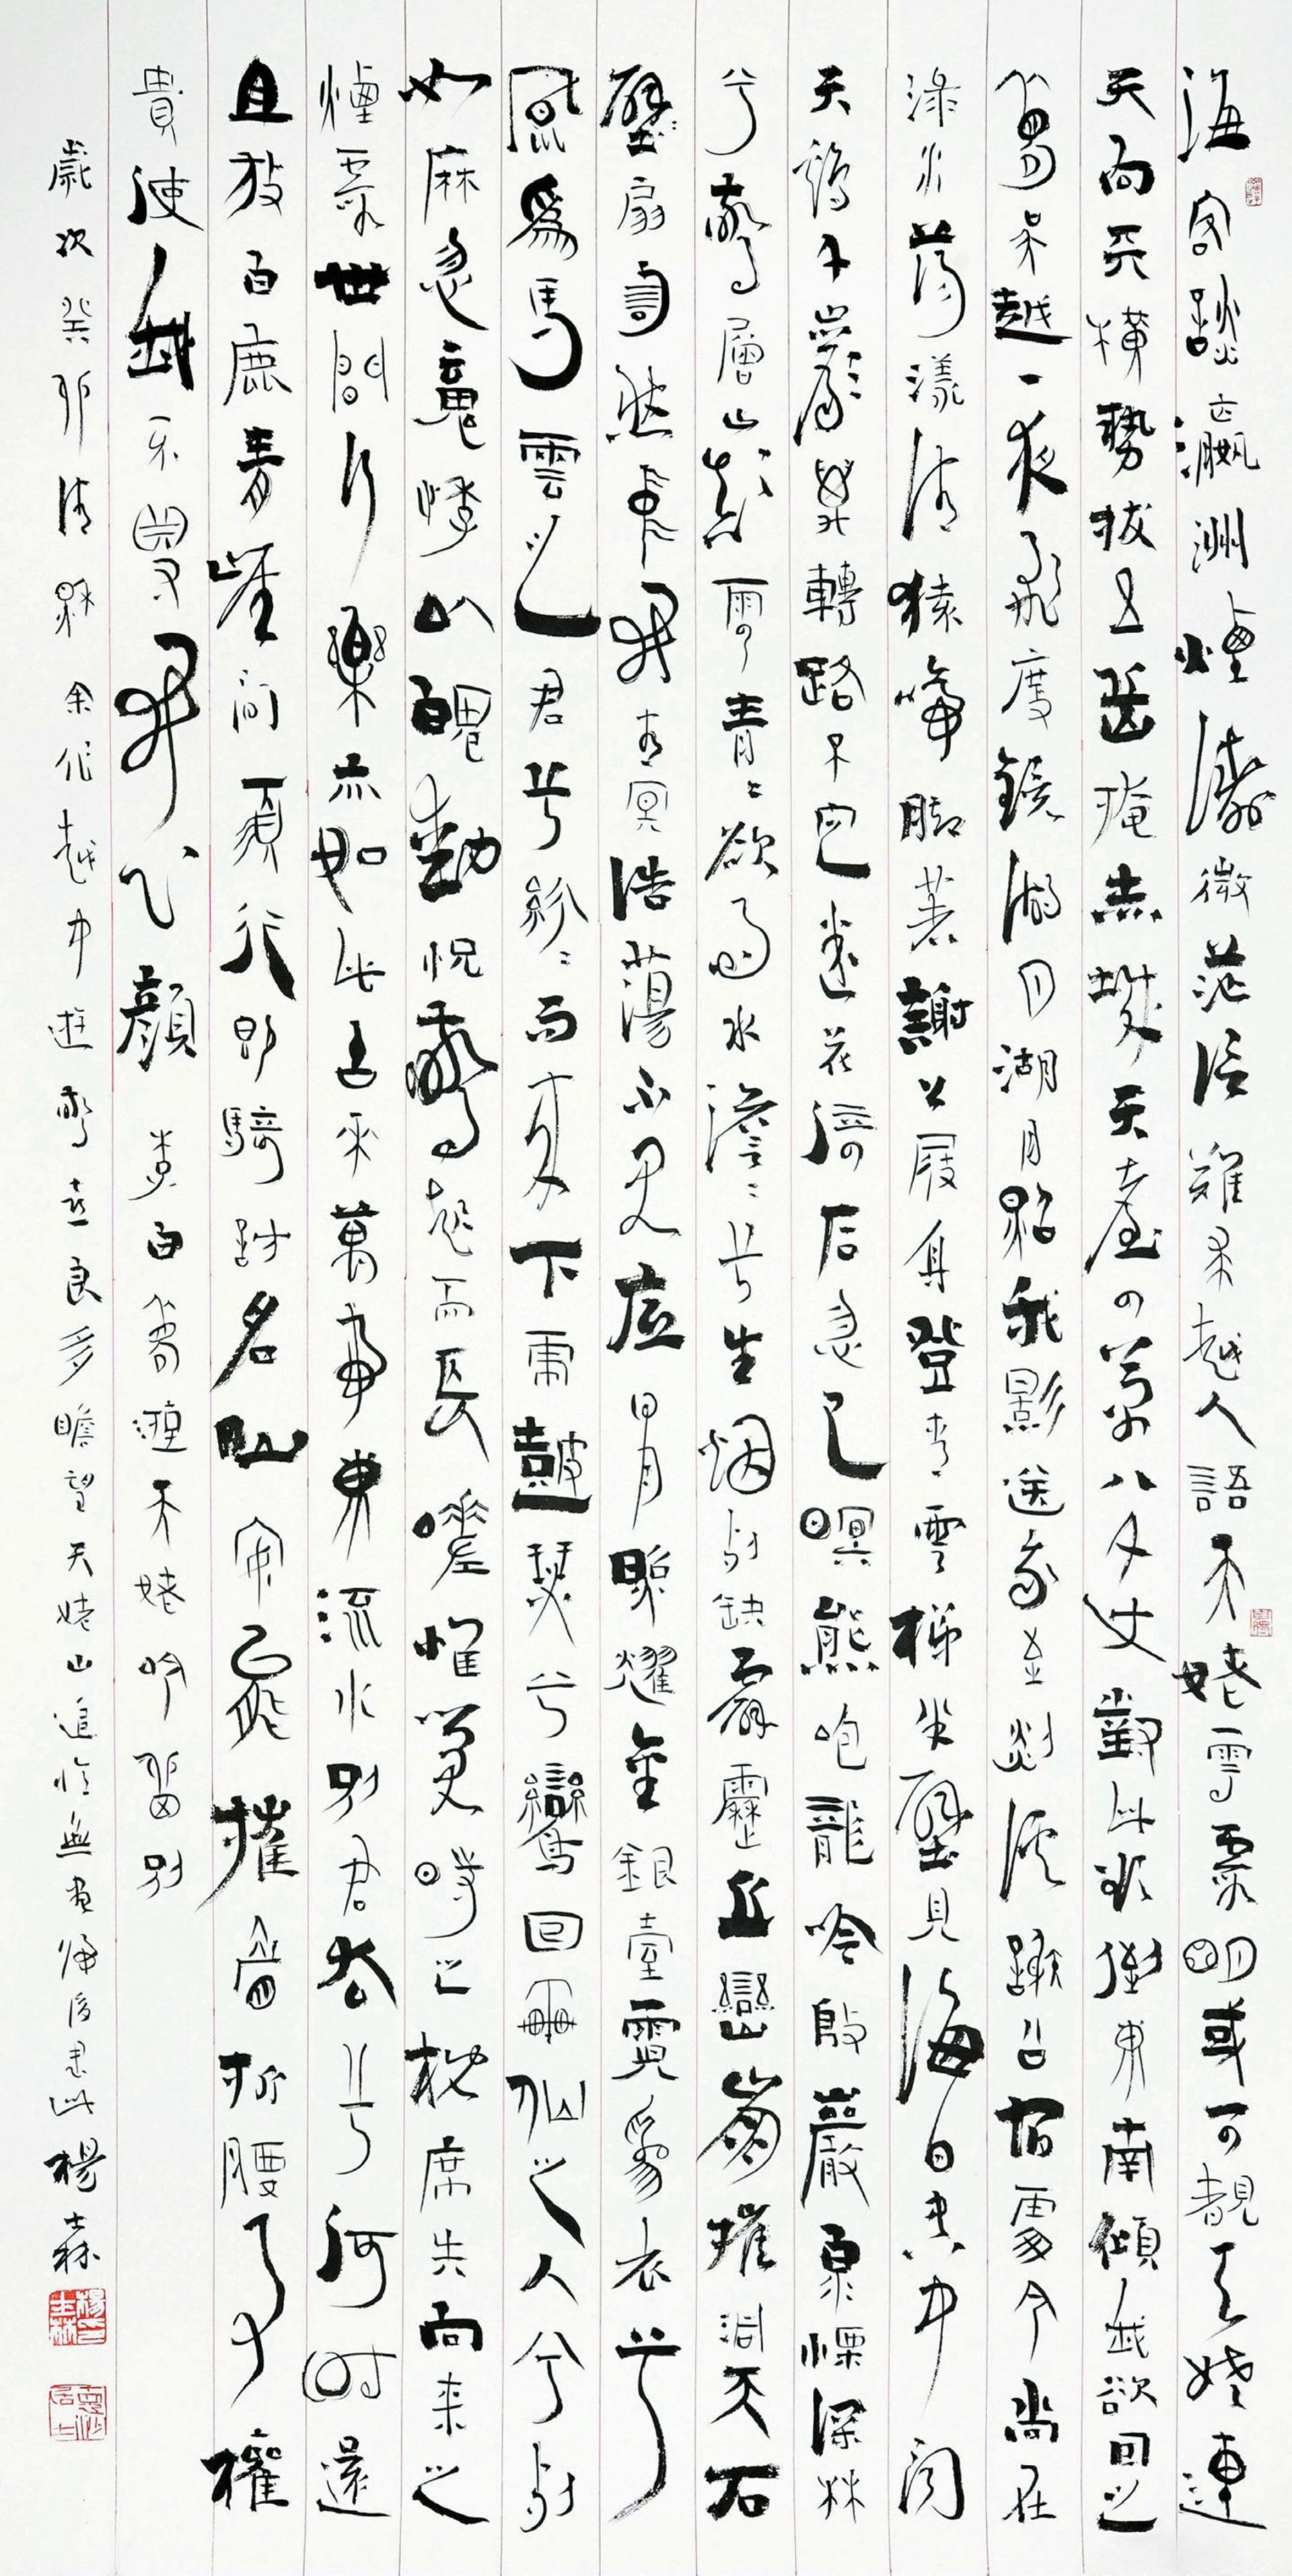 海客談瀛洲煙濤微茫信難求越人語天姥雲霓明或可覩天姥連
天向天橫勢拔五岳掩赤城天臺四萬八千丈對此欲倒東南傾我欲因之
夢吳越一夜飛度鏡湖月湖月照我影送我至剡溪謝公宿處今尚在
淥水蕩漾清猿啼腳著謝公屐身登青雲梯半壁見海日空中聞
天鷄千巖萬轉路不定迷花倚石忽已暝熊咆龍吟殷巖泉慄深林
兮驚層巔雲青青欲雨水澹澹兮生烟列缺霹靂丘巒崩摧洞天石
壁扇訇然中開青冥浩蕩不見底日月照耀金銀臺霓爲衣兮
風爲馬雲之君兮紛紛而來下虎鼓瑟兮鸞回車仙之人兮列
如麻忽魂悸以魄動怳驚起而長嗟惟覺時之枕席失向來之
煙霞世間行樂亦如此古來萬事東流水別君去兮何時還
且放白鹿青崖間須行即騎訪名山安能摧眉折腰事權
貴使我不得開心顏 李白夢遊天姥吟留別
歲次癸卯清秋余作越中遊 天姥山追 歸後書此楊士林
楊士林